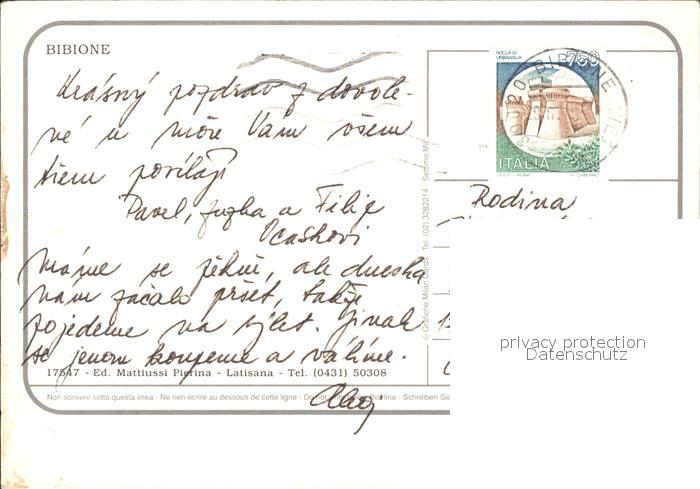 BIBIONE
Krásný pozdrav z dovole-
né u moře Vám všem
třem posílají
Pavel, Juzka a Filip
Ocáskovi
Máme se pěkně, ale dneska
nám začalo pršet, takže
pojedeme na výlet. Jinak
se jenom koupeme a válíme.
Ahoj
17547 - Ed. Mattiussi Pierina - Latisana - Tel. (0431) 50308
Non scrivere sotto questa linea - Ne rien écrire au dessous de cette ligne - Do not write below this line - Schreiben Sie
© Grafiche Milan Cards - Tel. (02) 3282214 - Settimo Mil
ROCCA DI
URBISAGLIA
750
ITALIA
I.P.Z.S. - ROMA
BIBIONE
Rodina
privacy protection
Datenschutz